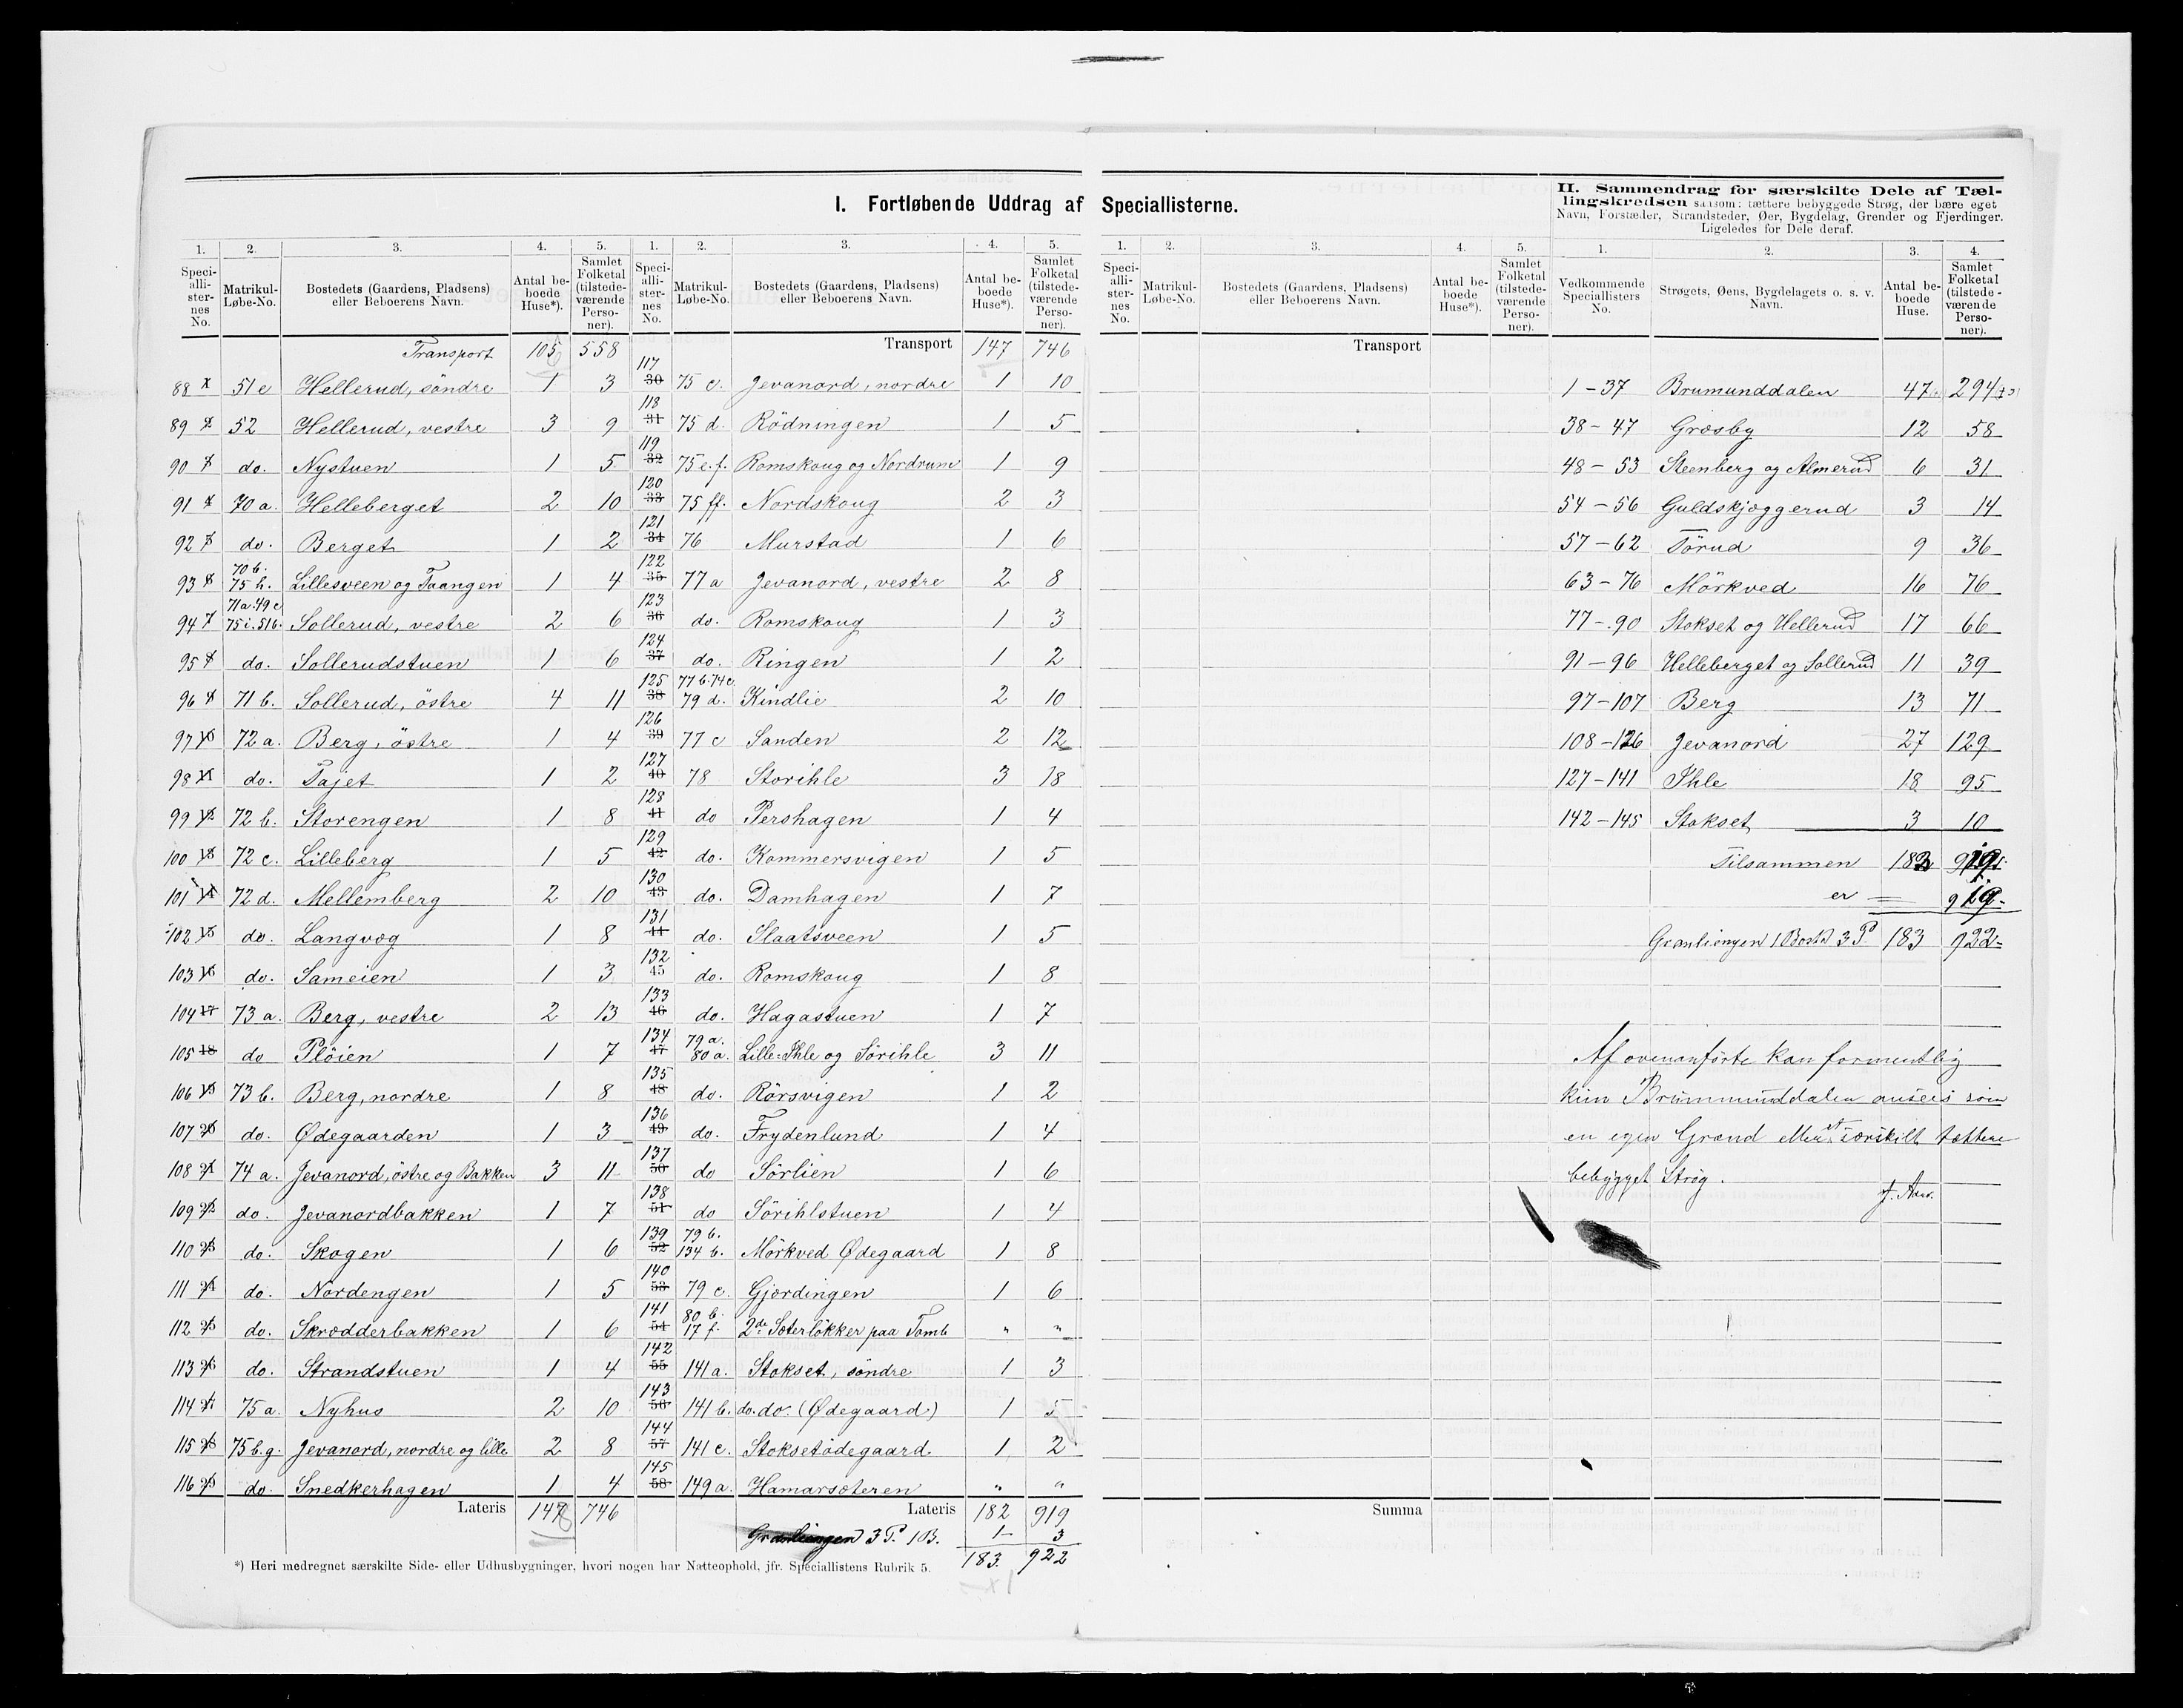 I. Fortløbende Uddrag af Speciallisterne.
II. Sammendrag for særskilte Dele af Tæl-
lingskredsen saasom: tættere bebyggede Strøg, der bære eget
Navn, Forstæder, Strandsteder, Øer, Bygdelag, Grender og Fjerdinger.
Ligeledes for Dele deraf.
1. 2. 3. 4. 5.
Speci-alli-ster-nes No. Matrikul-Løbe-No. Bostedets (Gaardens, Pladsens) eller Beboerens Navn. Antal be-boede Huse*). Samlet Folketal (tilstede-værende Perso-ner).
Transport 105 558
88 51 e Hellerud, söndre 1 3
89 52 Hellerud, vestre 3 9
90 do. Nystuen 1 5
91 70 a. Helleberget 2 10
92 do. Berget 1 2
93 70 b. 75 h. Lillesveen og Taangen 1 4
94 71 a. 49 c 75 i. 51 b. Sollerud, vestre 2 6
95 do. Sollerudstuen 1 6
96 71 b. Sollerud, östre 4 11
97 72 a. Berg, östre 1 4
98 do. Tajet 1 2
99 72 b. Storengen 1 8
100 72 c. Lilleberg 1 5
101 72 d. Mellemberg 2 10
102 do. Langvæg 1 8
103 do. Sameien 1 3
104 17 73 a. Berg, vestre 2 13
105 18 do Plöien 1 7
106 19 73 b. Berg, nordre 1 8
107 20 do. Ødegaarden 1 3
108 21 74 a. Jevanord, östre og Bakken 3 11
109 22 do. Jevanordbakken 1 7
110 23 do. Skogen 1 6
111 24 do. Nordengen 1 5
112 25 do. Skrædderbakken 1 6
113 26 do. Strandstuen 1 4
114 27 75 a. Nyhus 2 10
115 28 75 b. g. Jevanord, nordre og lille 2 8
116 29 do. Snedkerhagen 1 4
Lateris 147 746
1. 2. 3. 4. 5.
Speci-alli-ster-nes No. Matrikul-Løbe-No. Bostedets (Gaardens, Pladsens) eller Beboerens Navn. Antal be-boede Huse*). Samlet Folketal (tilstede-værende Perso-ner).
Transport 147 746
117 30 75 c. Jevanord, nordre 1 10
118 31 75 d. Rödningen 1 5
119 32 75 e. f. Romskoug og Nordrum 1 9
120 33 75 ff. Nordskoug 2 3
121 34 76 Murstad 1 6
122 35 77 a Jevanord, vestre 2 8
123 36 do. Romskoug 1 3
124 37 do. Ringen 1 2
125 38 77 b. 74 c. 79 d. Kindlie 2 10
126 39 77 c Sanden 2 12
127 40 78 Storihle 3 18
128 41 do Pershagen 1 4
129 42 do. Kommersvigen 1 5
130 43 do. Damhagen 1 7
131 44 do. Slaatsveen 1 5
132 45 do. Romskoug 1 8
133 46 do. Hagastuen 1 7
134 47 79 a. 80 a. Lille-Ihle og Sörihle 3 11
135 48 do. Rörsvigen 1 2
136 49 do. Frydenlund 1 4
137 50 do Sörlien 1 6
138 51 do Sörihlstuen 1 4
139 52 79 b. 134 b. Mörkved Ødegaard 1 8
140 53 79 c. Gjördingen 1 6
141 54 80 b. 17 f. 2de Sæterlökker paa Tomb " "
142 55 141 a. Stokset, söndre 1 3
143 56 141 b. do. do. (Ødegaard) 1 5
144 57 141 c. Stoksetödegaard 1 2
145 58 149 a. Hamarsæteren " "
Lateris 182 919
Granliengen 3 P. 1 B. 1 3
183. 922
*) Heri medregnet særskilte Side- eller Udhusbygninger, hvori nogen har Natteophold, jfr. Speciallistens Rubrik 5.
1. 2. 3. 4. 5.
Speci-alli-ster-nes No. Matrikul-Løbe-No. Bostedets (Gaardens, Pladsens) eller Beboerens Navn. Antal be-boede Huse*). Samlet Folketal (tilstede-værende Perso-ner).
Transport
Summa
1. 2. 3. 4.
Vedkommende Speciallisters No. Strøgets, Øens, Bygdelagets o. s. v. Navn. Antal be-boede Huse. Samlet Folketal (tilstede-værende Perso-ner).
1-37 Brumunddalen 47 294
38-47 Græsby 12 58
48-53 Steenberg og Almerud 6 31
54-56 Guldskjæggerud 3 14
57-62 Törud 9 36
63-76 Mörkved 16 76
77-90 Stokset og Hellerud 17 66
91-96 Helleberget og Sollerud 11 39
97-107 Berg 13 71
108-126 Jevanord 27 129
127-141 Ihle 18 95
142-145 Stokset 3 10
Tilsammen 182 919
er 919
Granliengen 1 Bosted 3 P 183 922
Af ovenanförte kan formentlig
kun Brummunddalen ansees som
en egen Grænd eller et særskilt tættere
bebygget Strøg.